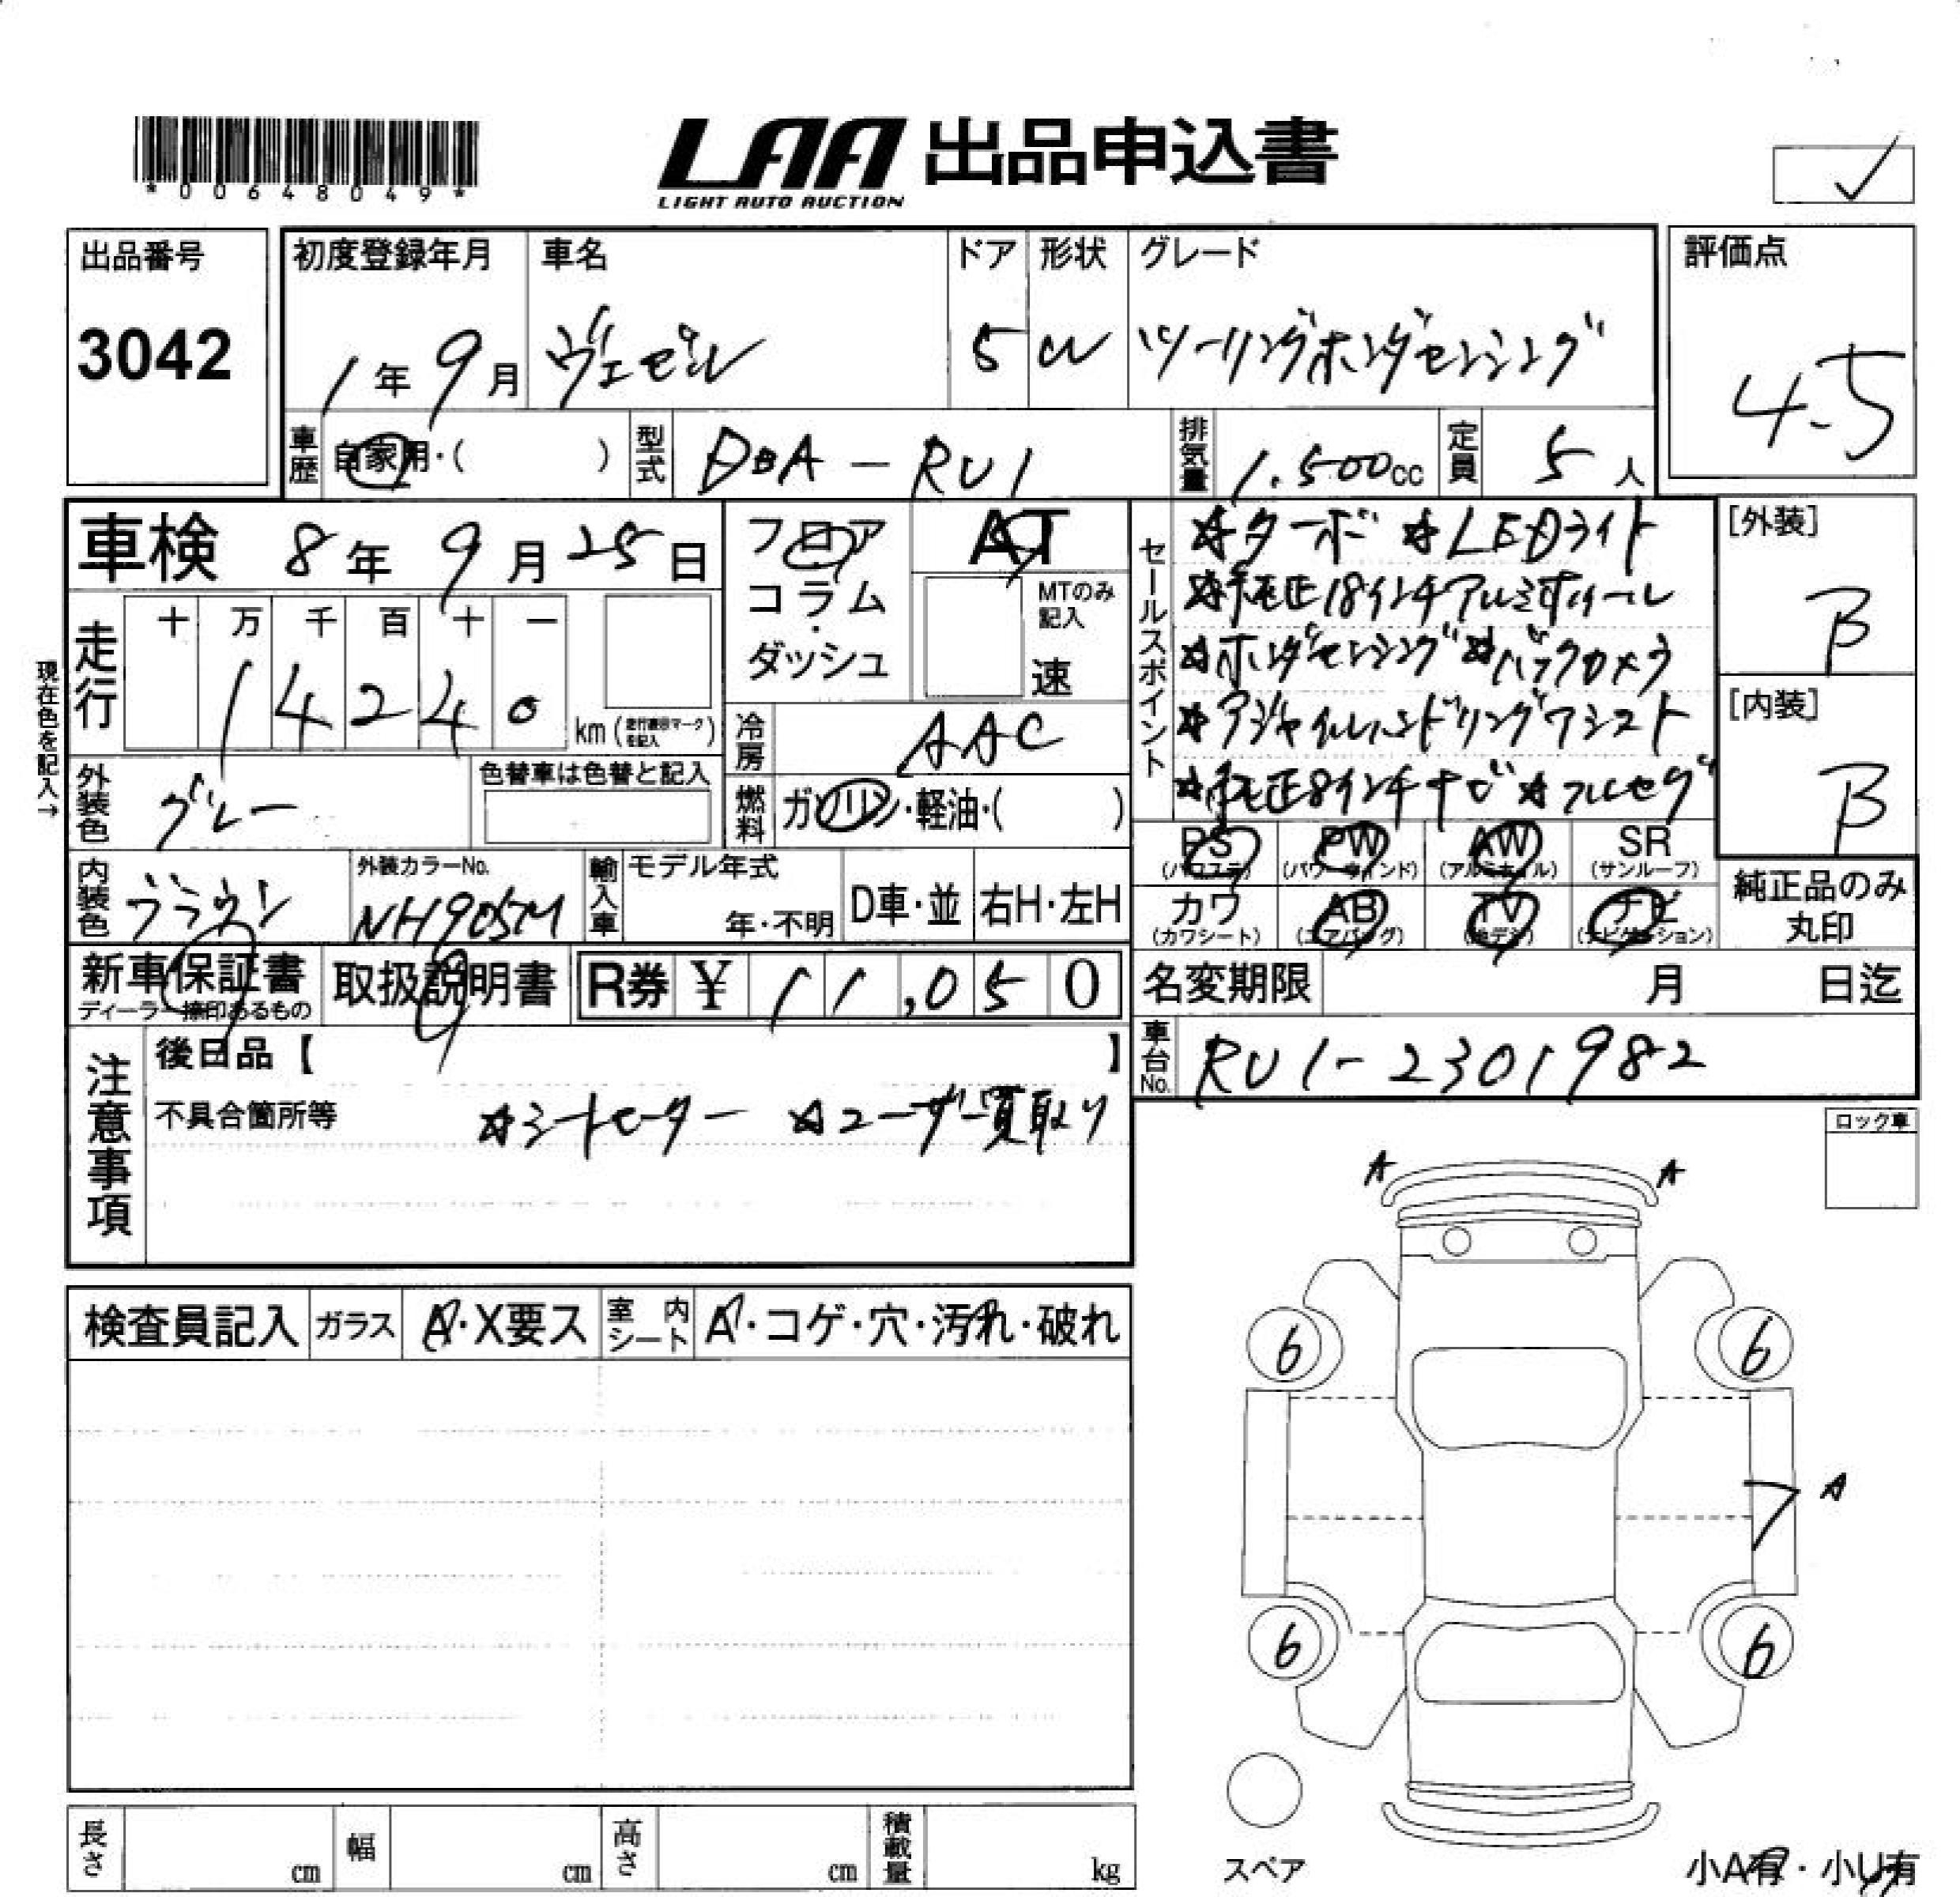 *00648049*
LAA 出品申込書
LIGHT AUTO AUCTION
✓
出品番号
3042
初度登録年月
1年9月
車名
ヴェゼル
ドア
5
形状
W
グレード
ツーリングホンダセンシング
評価点
4.5
車歴
自家用・( )
型式
DBA-RU1
排気量
1.500cc
定員
5人
車検 8年9月25日
フロア
コラム
・
ダッシュ
AT
MTのみ
記入
速
セールスポイント
☆ターボ ☆LEDライト
☆純正18インチアルミホイール
☆ホンダセンシング☆バックカメラ
☆アジャイルハンドリングアシスト
☆純正8インチナビ☆フルセグ
[外装]
B
[内装]
B
走行
十 万 千 百 十 一
1 4 2 4 0
km (走行表示マークを記入)
現在色を記入→
冷房
AAC
外装色
グレー
色替車は色替と記入
燃料
ガソリン・軽油・( )
PS
(パワステ)
PW
(パワーウインド)
AW
(アルミホイル)
SR
(サンルーフ)
内装色
ブラウン
外装カラーNo.
NH905M
輸入車
モデル年式
年・不明
D車・並
右H・左H
カワ
(カワシート)
AB
(エアバッグ)
TV
ナビ
(ナビゲーション)
純正品のみ
丸印
新車保証書
ディーラー捺印あるもの
取扱説明書
R券 ¥ 11,050
名変期限
月 日迄
注意事項
後日品【 】
車台No.
RU1-2301982
不具合箇所等
☆シートヒーター ☆ユーザー買取り
ロック車
A A
検査員記入
ガラス
A・X要ス
室内シート
A・コゲ・穴・汚れ・破れ
6 6
A
6 6
長さ
cm
幅
cm
高さ
cm
積載量
kg
スペア
小A有・小U有